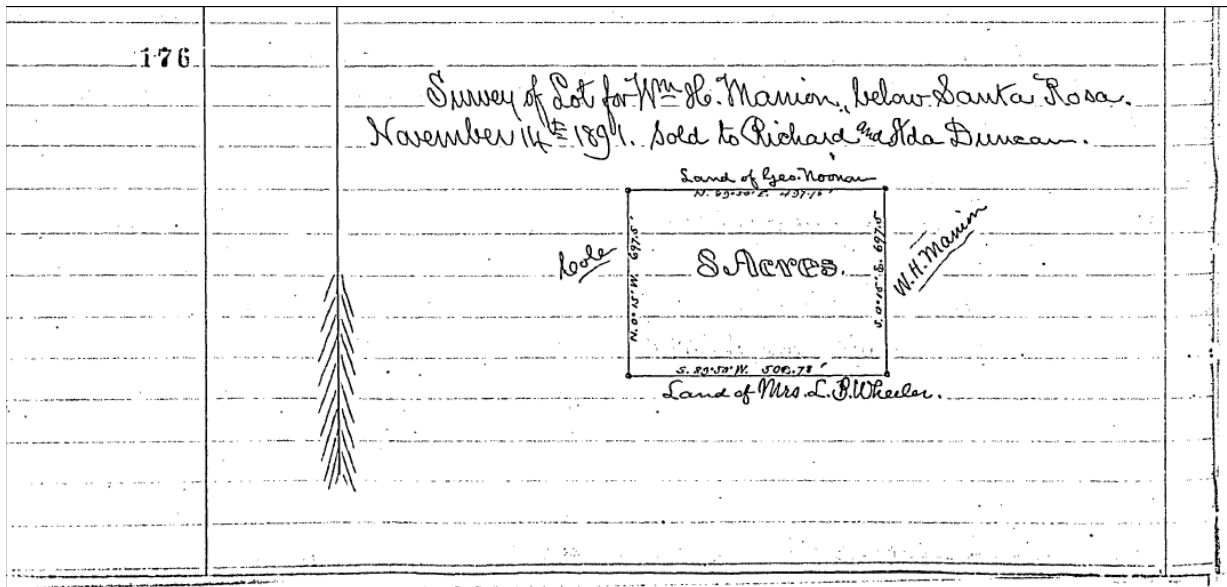 176
Survey of Lot for Wm H. Manion, below Santa Rosa.
November 14th 1891. Sold to Richard and Ada Duncan.
Land of Geo. Noonan
N. 89°50' E. 497.16'
Cole
N. 0°15' W. 697.5'
8 Acres.
S. 0°15' E. 697.5
W. H. Manion
S. 89°50' W. 508.78'
Land of Mrs. L. B. Wheeler.